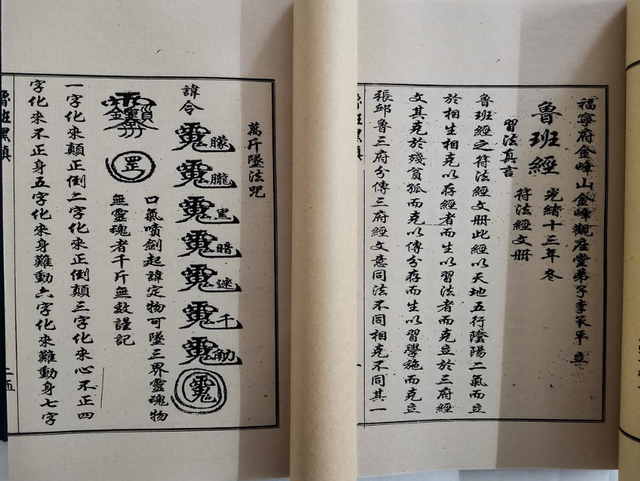 福寧府金峰山金峰觀座堂弟子李 平 立
魯班經 光緒十三年冬
符法經文册
習法真言
魯班經之符法經文册此經以天地五行陰陽二氣而立
於相生相克以存經者而生以習法者而克立於三府經
文其克於殘貧孤而克以傳分存而生以習學施而克立
張邱魯三府分傳三府經文意同法不同相克不同其一
魯班
萬斤墜法咒
諱令
朦
朧
黑
暗
迷
千
動
罡
口氣噴劍起諱定物可墜三界靈魂物
無靈魂者千斤無效謹記
一字化來顛正倒二字化來正倒顛三字化來心不正四
字化來不正身五字化來身難動六字化來難動身七字
魯班
二五